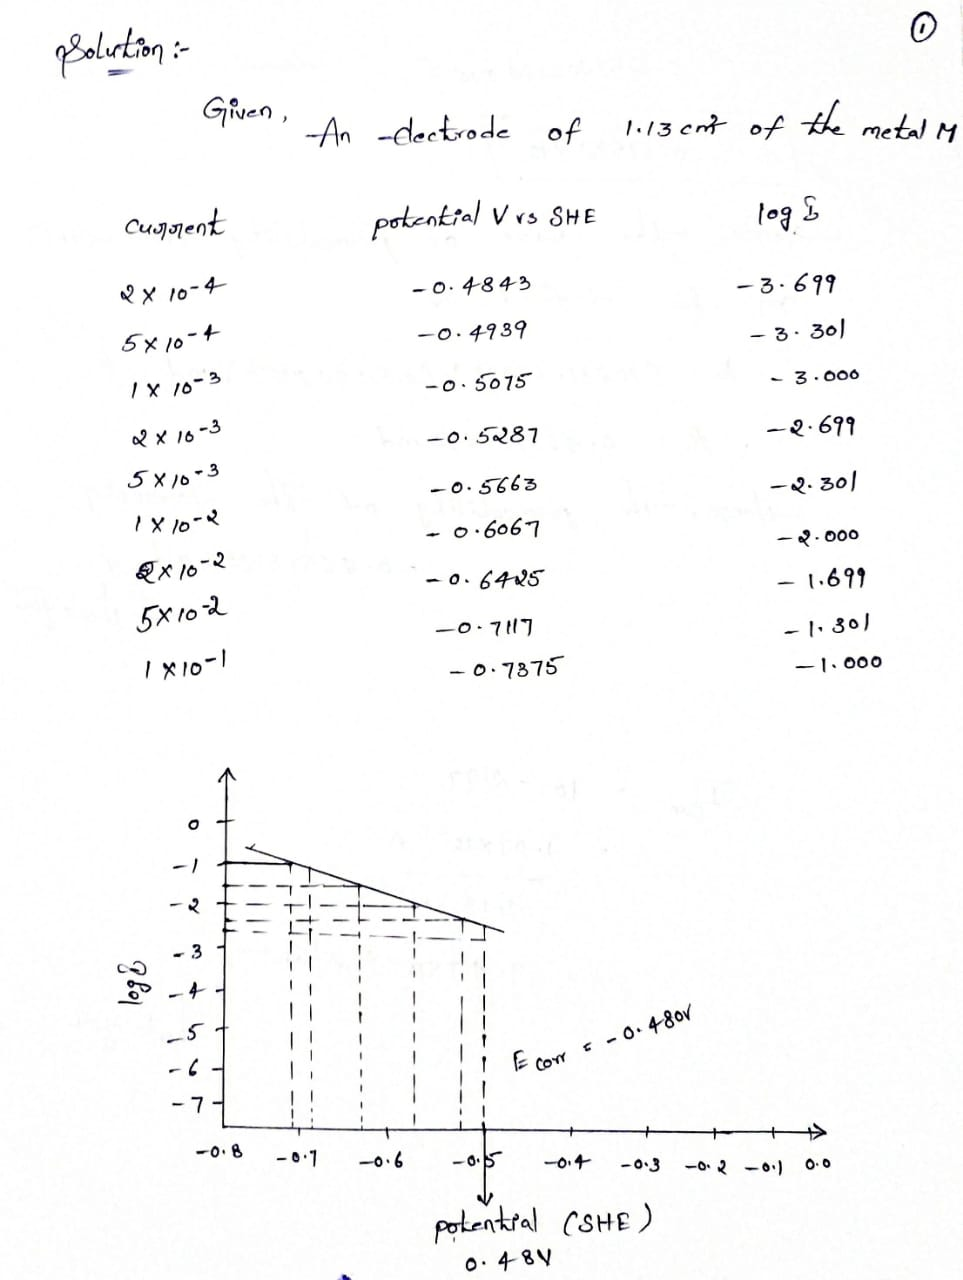 ①
Solution :-
Given, An electrode of 1.13 cm² of the metal M
current potential V vs SHE log I
2 × 10-4 -0.4843 -3.699
5 × 10-4 -0.4939 -3.301
1 × 10-3 -0.5075 -3.000
2 × 10-3 -0.5287 -2.699
5 × 10-3 -0.5663 -2.301
1 × 10-2 -0.6067 -2.000
2 × 10-2 -0.6425 -1.699
5 × 10-2 -0.7117 -1.301
1 × 10-1 -0.7375 -1.000
0
-1
-2
-3
-4
-5
-6
-7
log I
E corr = -0.480V
-0.8 -0.7 -0.6 -0.5 -0.4 -0.3 -0.2 -0.1 0.0
potential (SHE)
0.48V